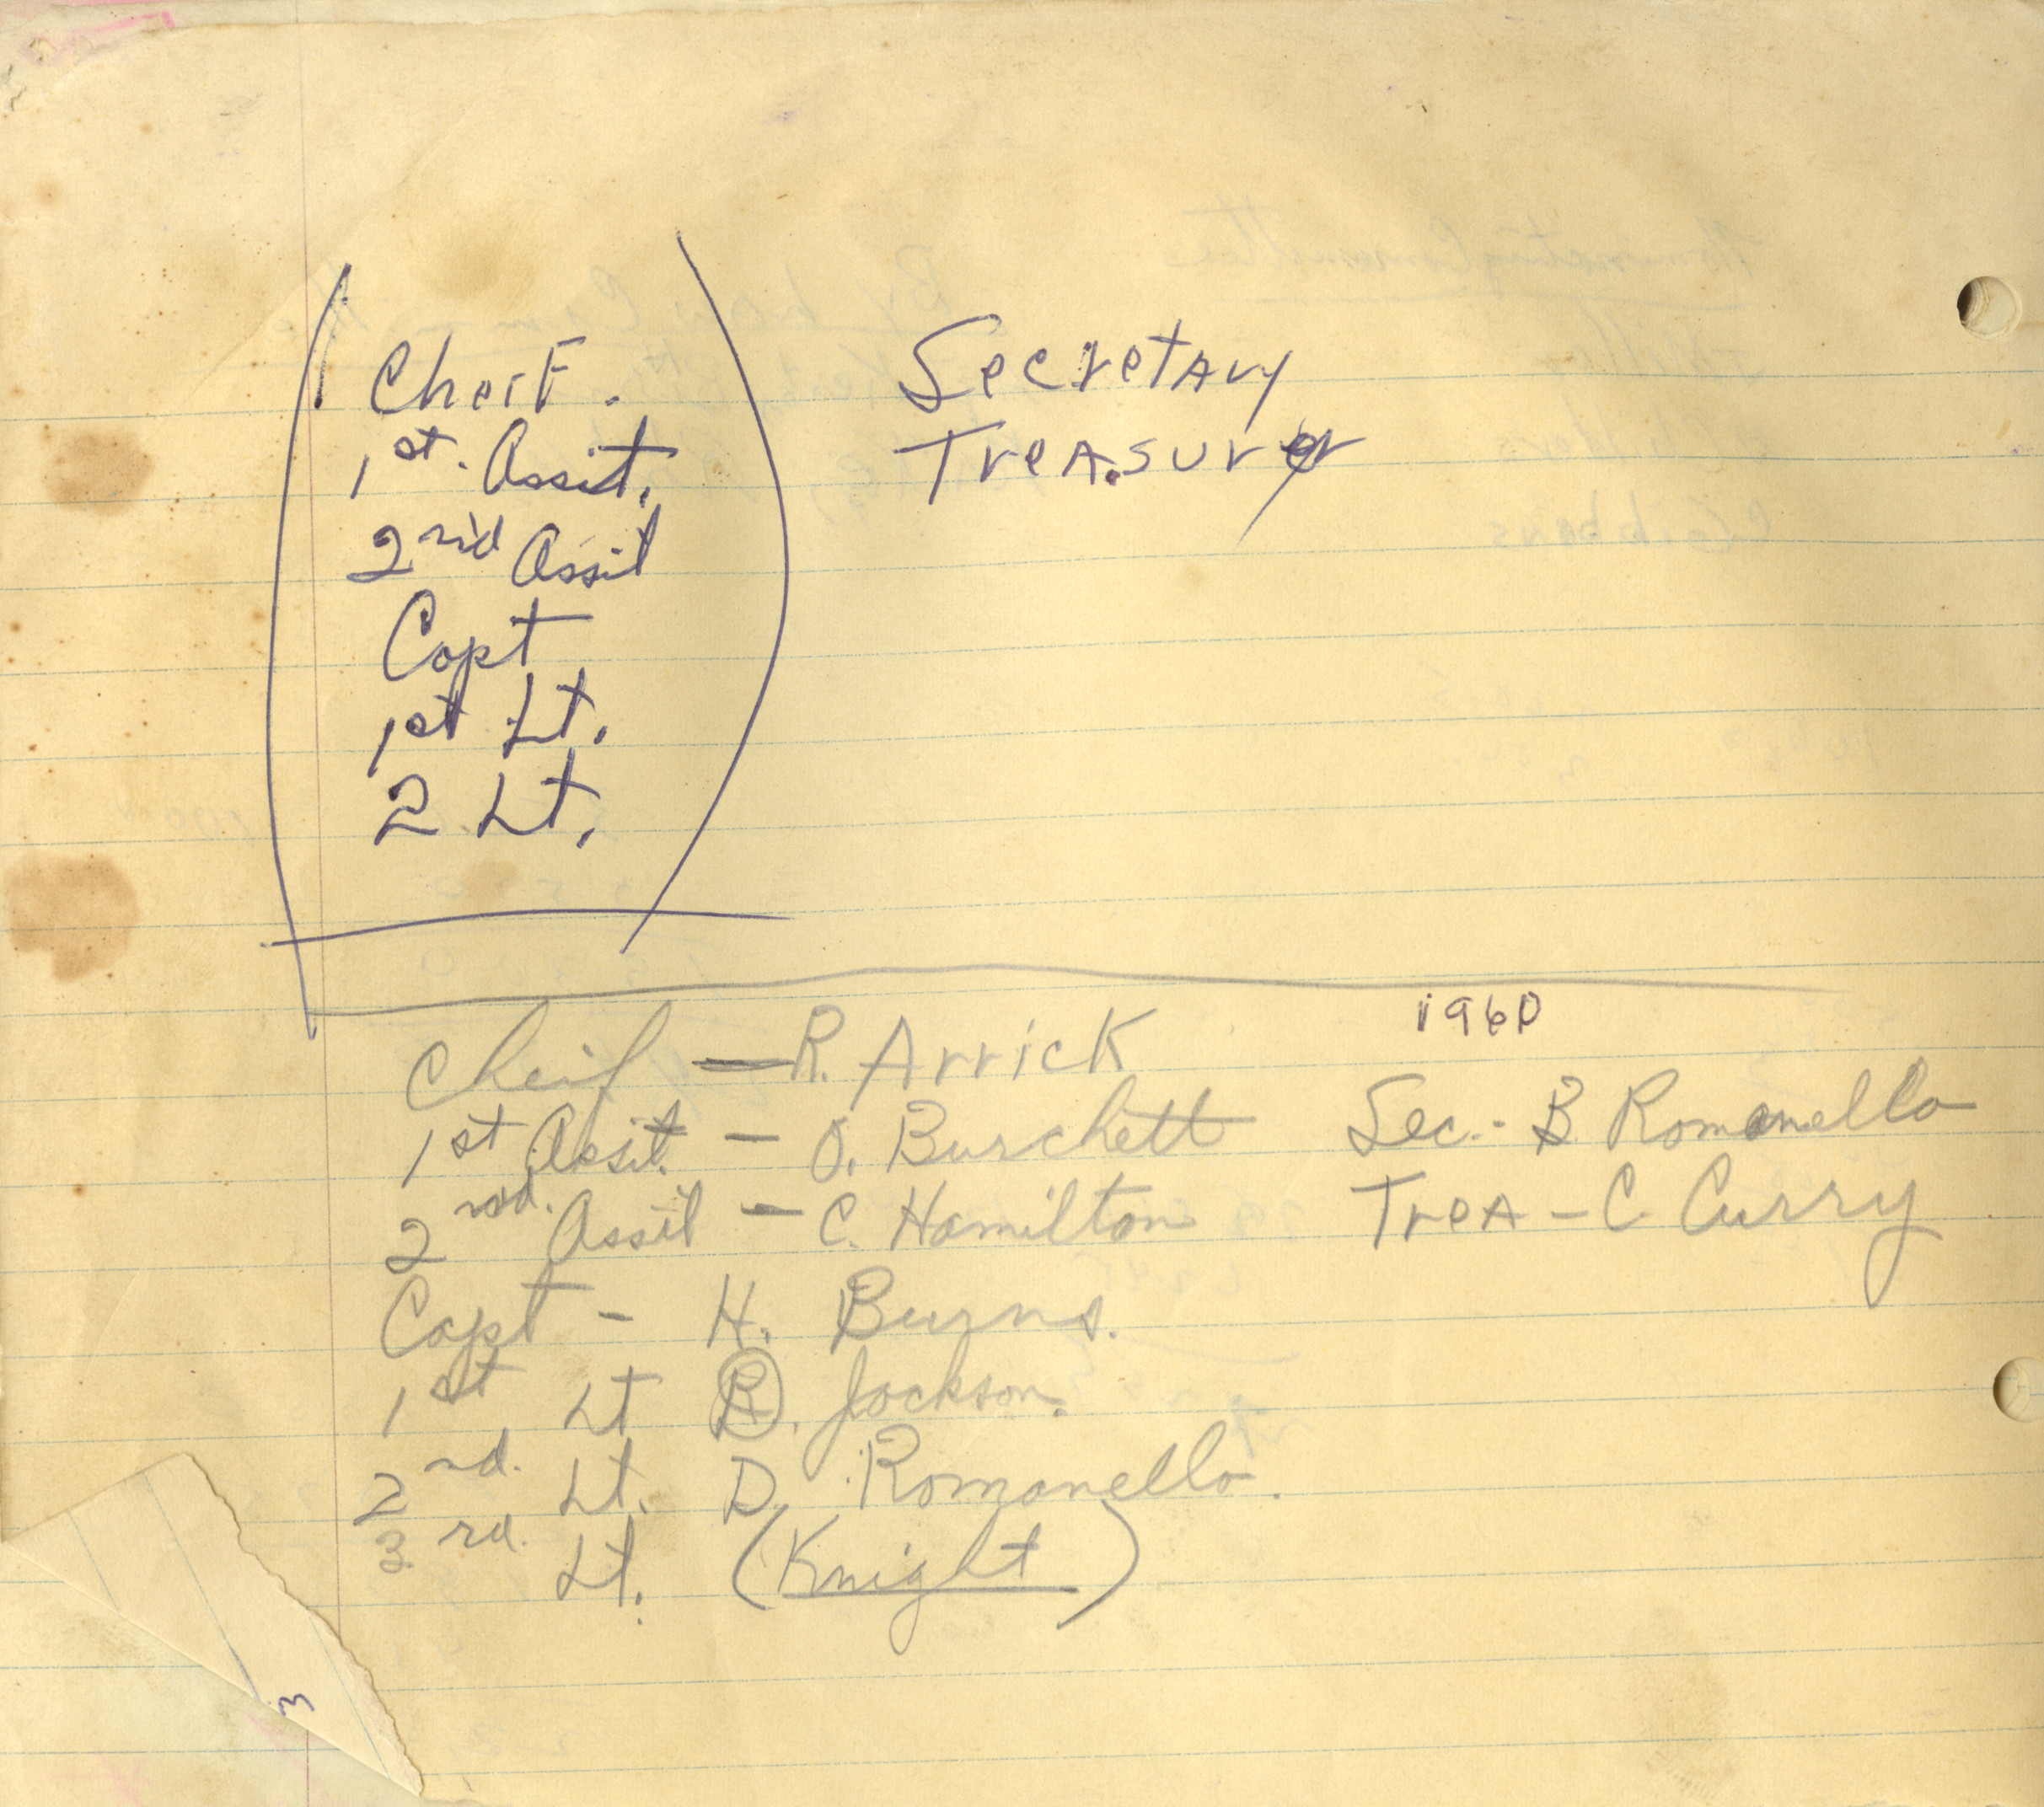 Cheif.
1st. Assit.
2nd Assit
Capt
1st Lt.
2 Lt.
Secretary
Treasurer
1960
Cheif — R. Arrick
1st Assit. — O. Burchett
2nd. Assit — C. Hamilton
Capt - H. Burns.
1st Lt R. Jackson.
2nd. Lt. D. Romanello.
3rd. Lt. (Knight)
Sec. - B Romanello
Trea - C Curry
3